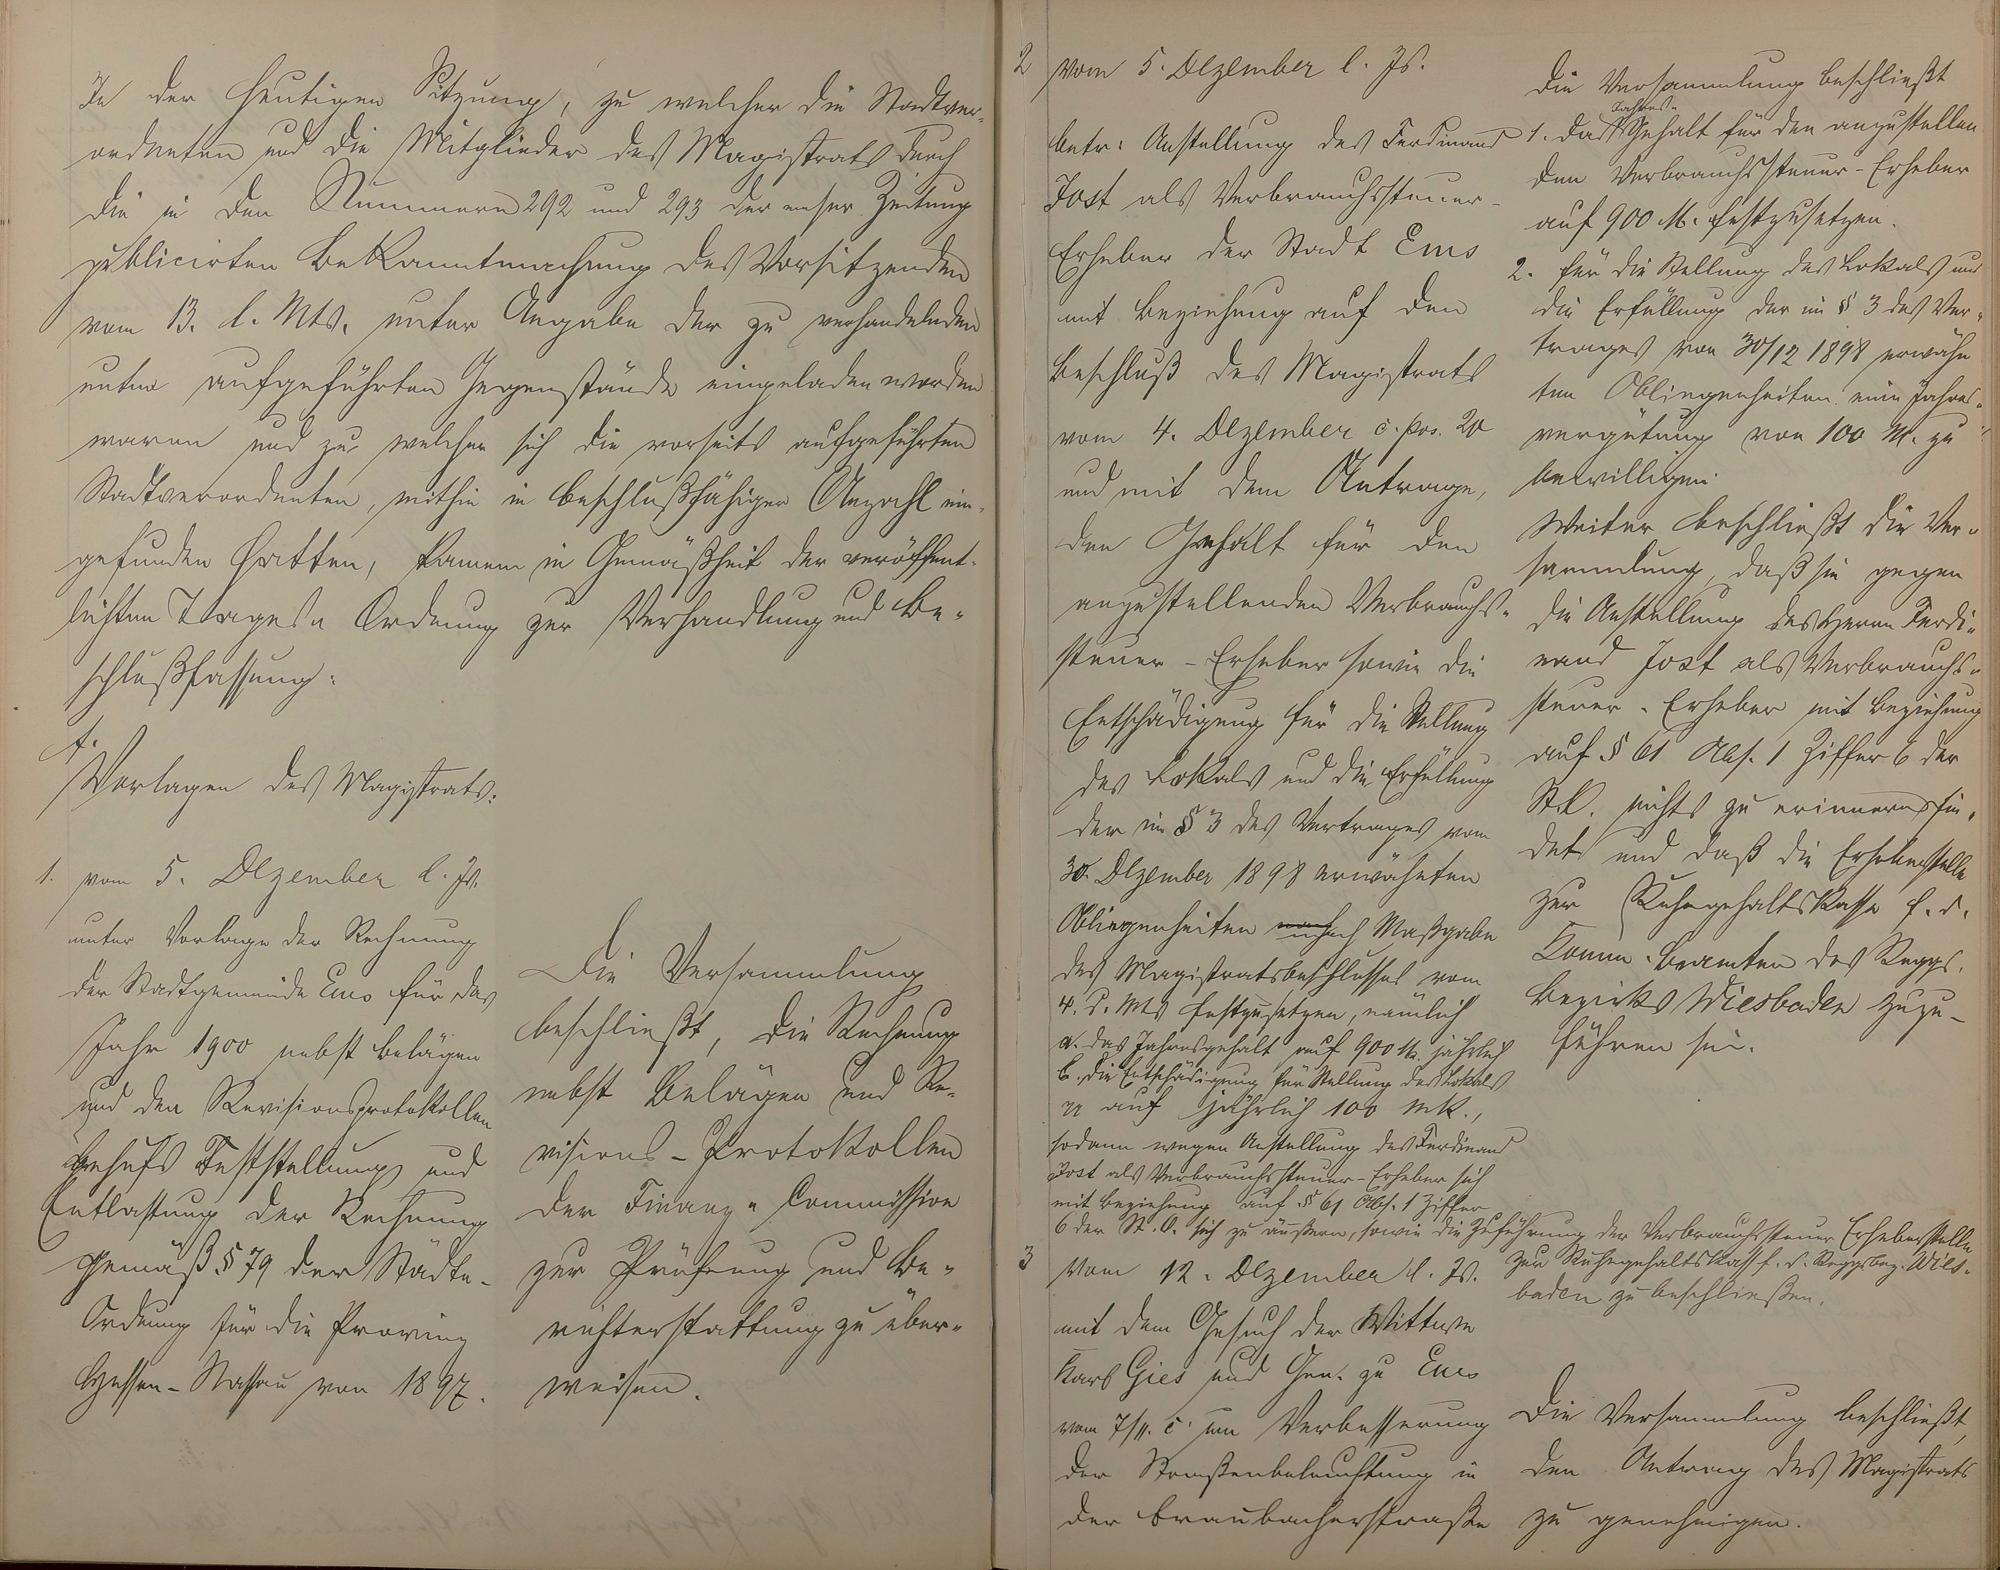 In der heutigen Sitzung, zu welcher die Stadtver-
ordneten und die Mitglieder des Magistrats durch
die in den Nummern 292 und 293 der emser Zeitung
publicirten Bekanntmachung des Vorsitzenden
vom 13. l. Mts. unter Angabe der zu verhandelnden
unten aufgeführten Gegenstände eingeladen worden
waren und zu welcher sich die vorseits aufgeführten
Stadtverordneten, mithin in beschlußfähiger Anzahl ein-
gefunden hatten, kamen in Gemäßheit der veröffent-
lichten Tages-Ordnung zur Verhandlung und Be-
schlußfassung:
Vorlagen des Magistrats:
1. vom 5. Dezember l. Js.
unter Vorlage der Rechnung
der Stadtgemeinde Ems für das
Jahr 1900 nebst Belägen
und den Revisionsprotokollen
behufs Feststellung und
Entlastung der Rechnung
gemäß § 79 der Städte-
Ordnung für die Provinz
Hessen-Nassau von 1897.
Die Versammlung
beschließt, die Rechnung
nebst Belägen und Re-
visions-Protokollen
der Finanz-Commission
zur Prüfung und Be-
richterstattung zu über-
weisen.
2 vom 5. Dezember l. Js.
betr: Anstellung des Ferdinand
Jost als Verbrauchssteuer-
Erheber der Stadt Ems
mit Beziehung auf den
Beschluß des Magistrats
vom 4. Dezember c. pos. 20
und mit dem Antrage,
den Gehalt für den
anzustellenden Verbrauchs-
steuer-Erheber sowie die
Entschädigung für die Stellung
des Lokals und die Erfüllung
der im § 3 des Vertrages vom
30. Dezember 1898 erwähnten
Obliegenheiten nach Maßgabe
des Magistratsbeschlusses vom
4. d. Mts festzusetzen, nämlich
a. das Jahresgehalt auf 900 M. jährlich
b. die Entschädigung für Stellung des Lokals
auf jährlich 100 Mk.,
sodann wegen Anstellung des Ferdinand
Jost als Verbrauchssteuer-Erheber sich
mit Beziehung auf § 61 Abs. 1 Ziffer
6 der St. O. sich zu äussern, sowie die Zuführung der Verbrauchssteuer Erheberstelle
zur Ruhegehaltskasse f. d. Reggsbez. Wies-
baden zu beschließen.
Die Versammlung beschließt
1. das Jahres-Gehalt für den anzustellen
den Verbrauchssteuer-Erheber
auf 900 M. festzusetzen.
2. für die Stellung des Lokals und
die Erfüllung der im § 3 des Ver-
trages von 30/12 1898 erwähn
ten Obliegenheiten eine Jahres-
vergütung von 100 M. zu
bewilligen.
Weiter beschließt die Ver-
sammlung, daß sie gegen
die Anstellung des Herrn Ferdi-
nand Jost als Verbrauchs-
steuer-Erheber mit Beziehung
auf § 61 Abs. 1 Ziffer 6 der
St.O. nichts zu erinnern fin-
det und daß die Erheberstelle
zur Ruhegehaltskasse f. d.
Komm.-Beamten des Reggs.
Bezirks Wiesbaden zuzu-
führen sei.
3 vom 12. Dezember l. Js.
mit dem Gesuch der Wittwe
Karl Gies und Gen. zu Ems
vom 7/11. c. um Verbesserung
der Straßenbeleuchtung in
der Braubacherstraße
Die Versammlung beschließt,
den Antrag des Magistrats
zu genehmigen.